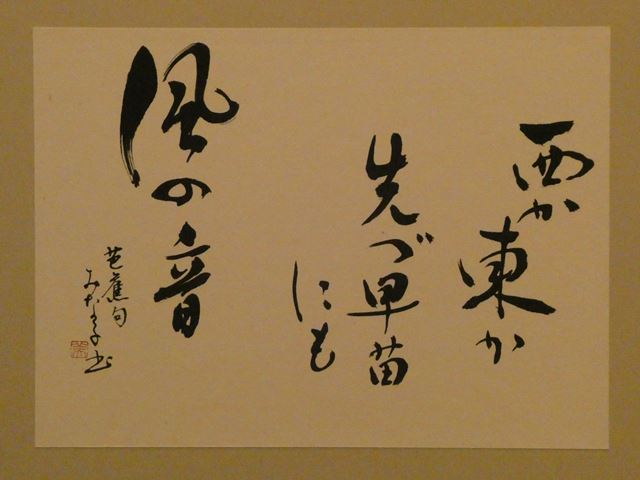 西か
東か
先づ早苗
にも
風の音
芭蕉句
みな子書